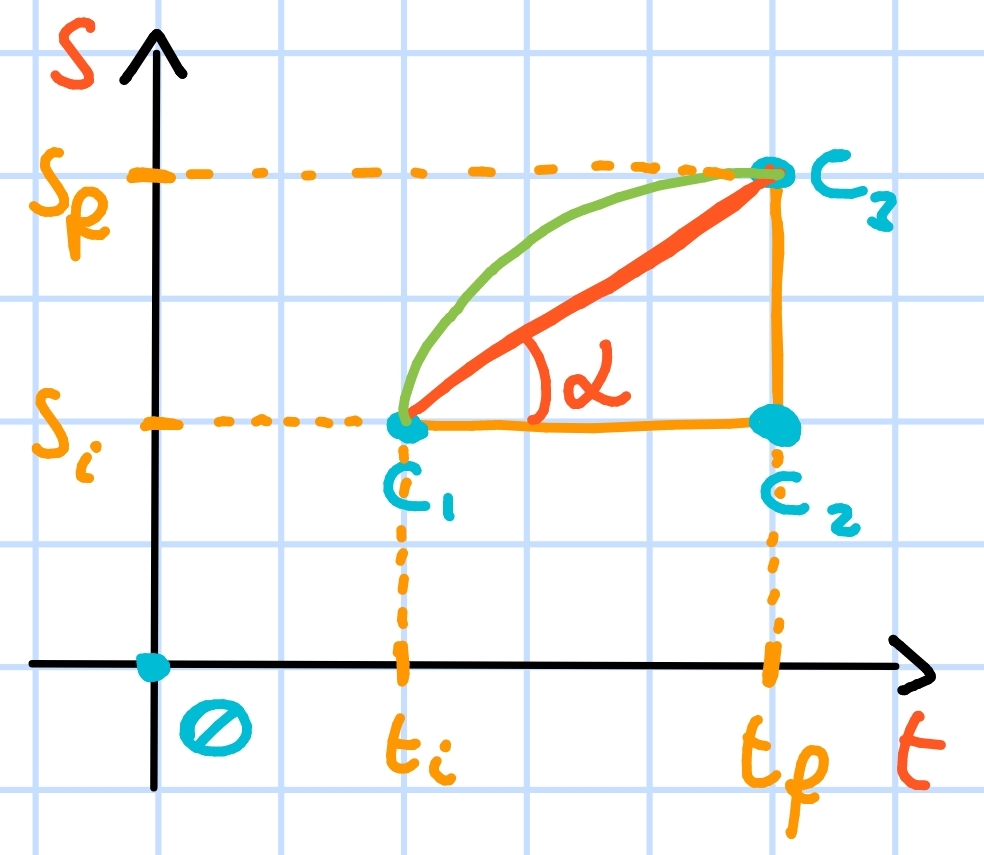 S
S_f
C_3
α
S_i
C_1
C_2
0
t_i
t_f
t